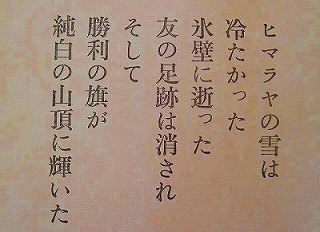 ヒマラヤの雪は
冷たかった
氷壁に逝った
友の足跡は消され
そして
勝利の旗が
純白の山頂に輝いた